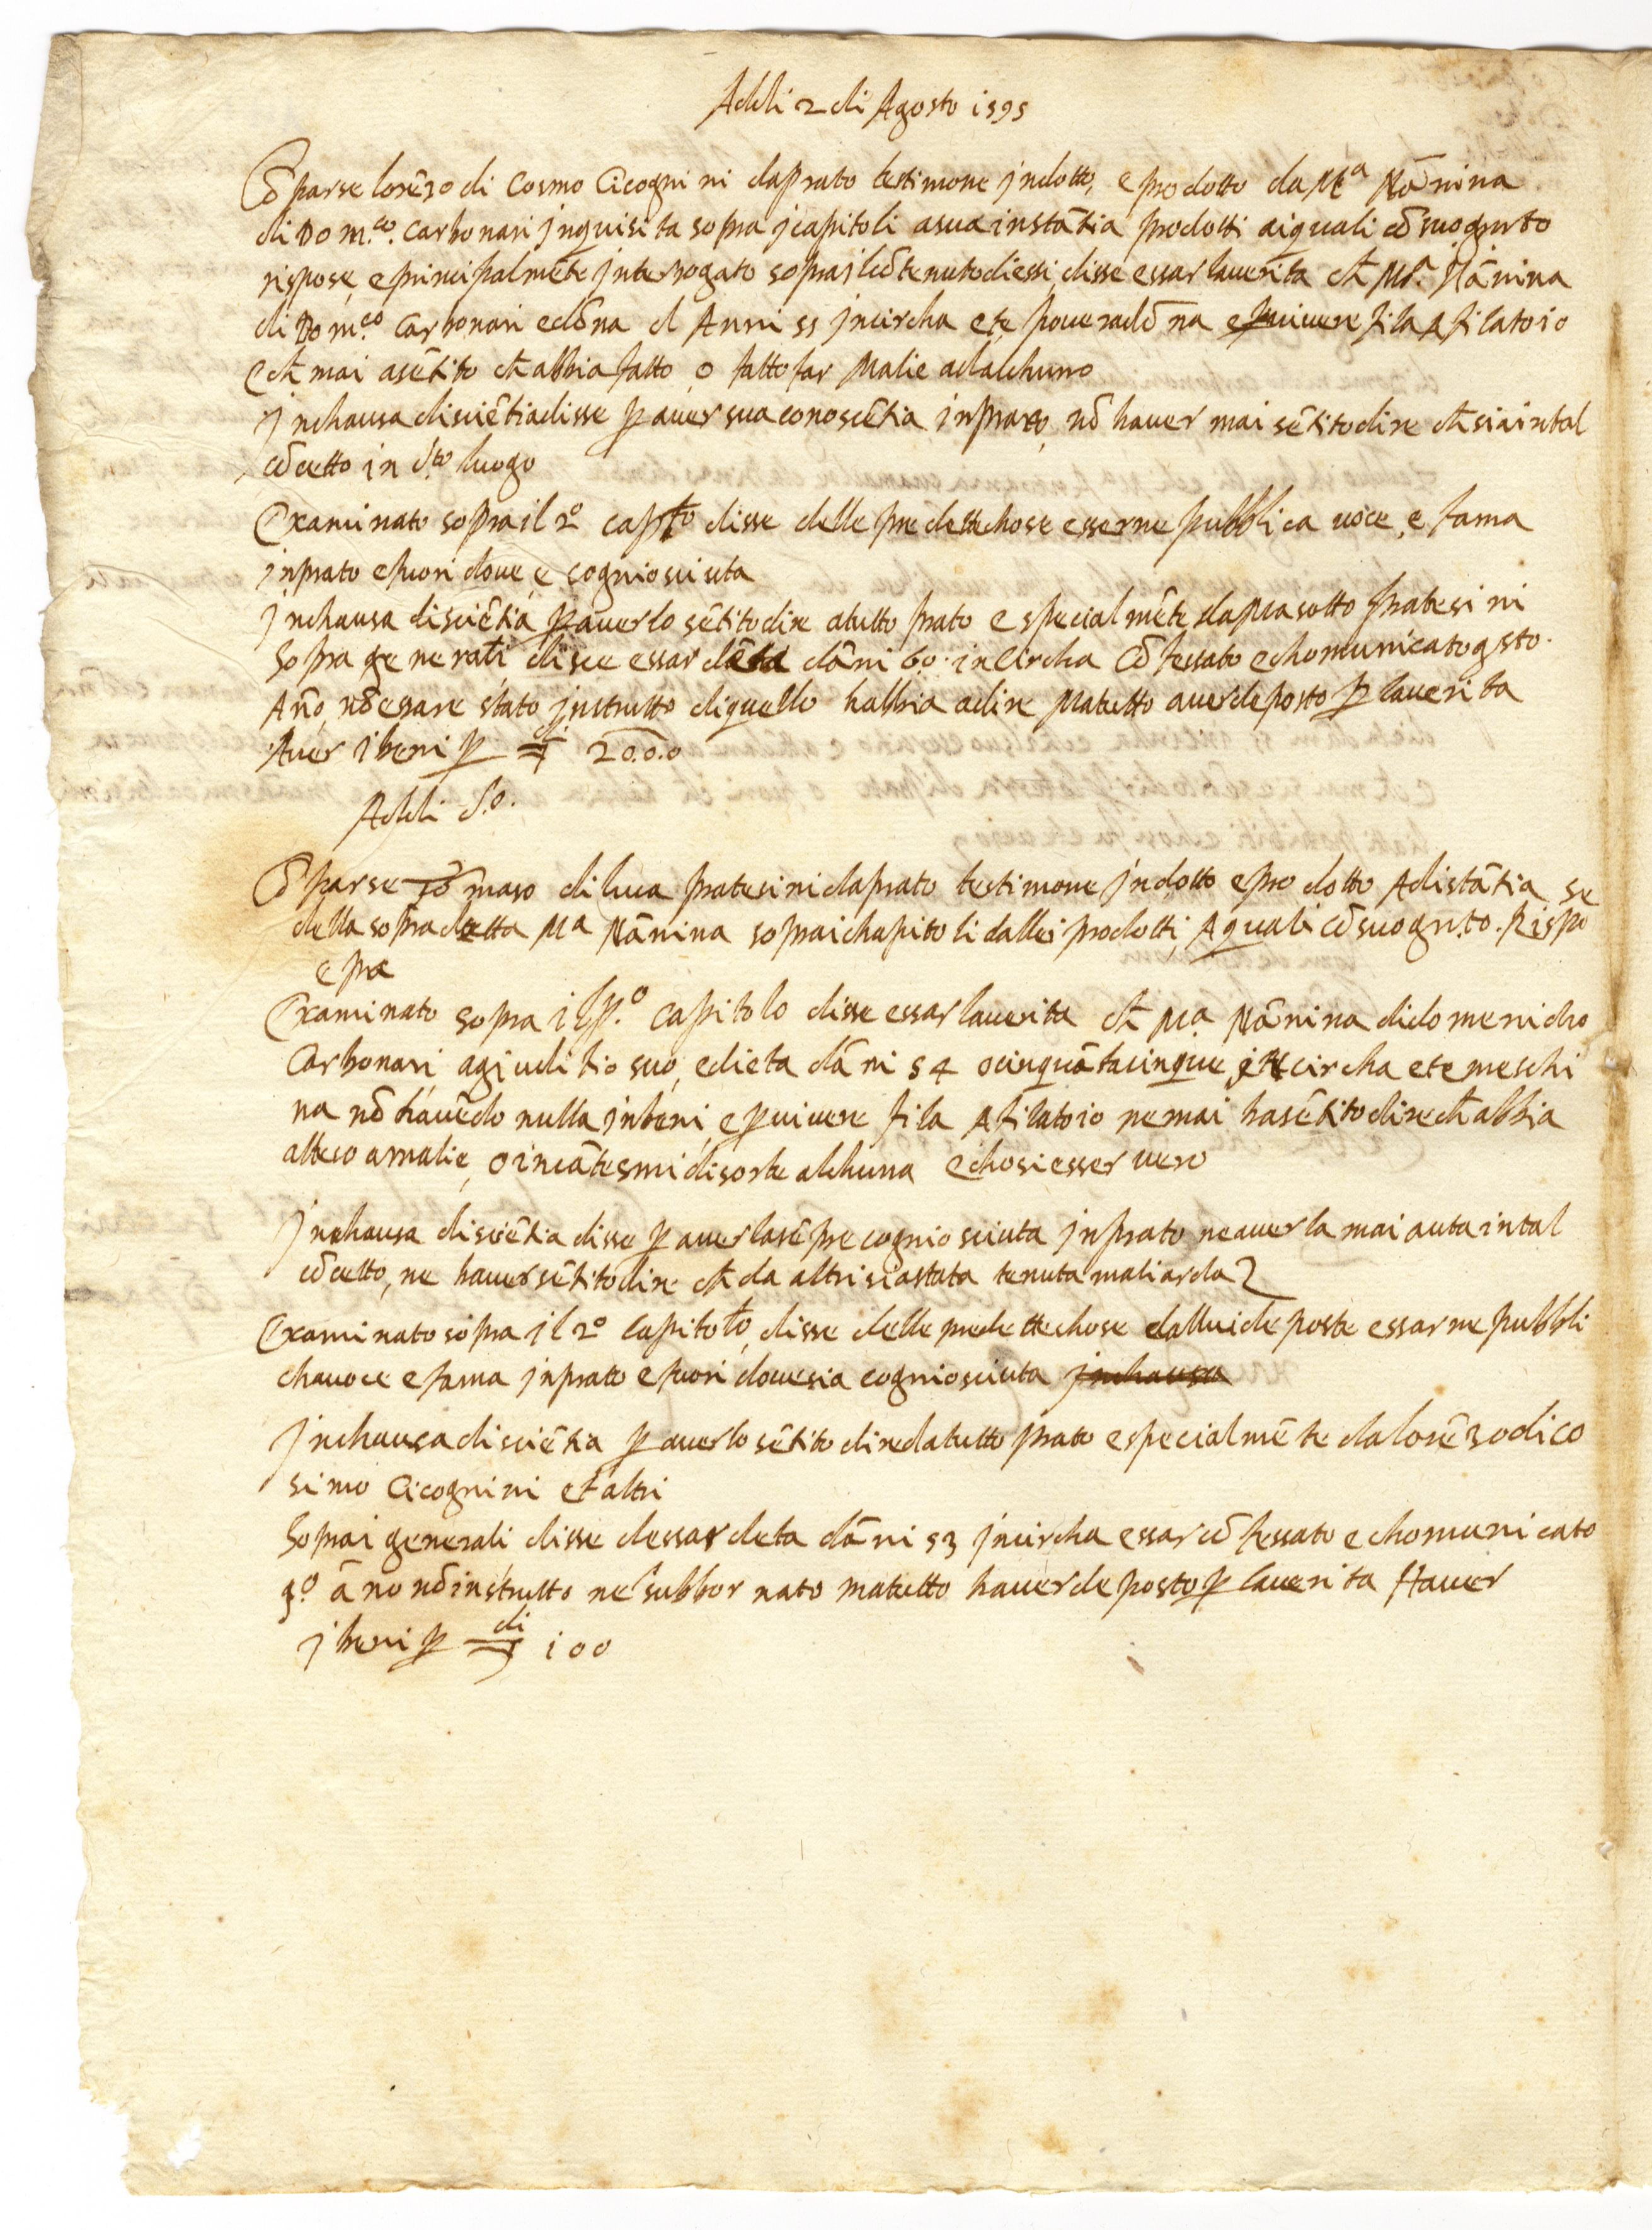 Addi 2 di Agosto 1595
Cōparse lorēzo di Cosmo Cicognini daprato testimone jndotto, e prodotto da Mª Nānina
di Dom.co Carbonari jnquisita sopra jcapitoli asua instātia prodotti aiquali cō suo giurto
rispose, e principalmēte jnterrogato sopra jlcōtenuto diessi, disse essar lauerita ch Mª. Nānina
di Dom.co Carbonari e dōna d Anni 55 jncircha et e pouera dōna e p viuere fila Afilatoio
e ch mai asētito ch abbia fatto, o fatto far Malie adalchuno
jnchausa disciētia disse p auer sua conoscētia inprato, nō hauer mai sētito dire ch sia intal
cōcetto in d.to luogo
Examinato sopra il 2º capto disse delle predettechose esserne pubblica uoce, e fama
jnprato e fuori doue, e cognosciuta
jnchausa disciētia, p auerlo sētito dire atutto prato e specialmēte da masotto pratesini
Sopra generali disse essar deta dāni 60. incircha Cōfessato echomunicato qsto.
Año, nō essare stato jnstrutto diquello habbia adire Matutto auer deposto p lauerita
Auer jbeni p di 2000
Addi d.º.
Cōparse Tōmaso di luca pratesini daprato testimone jndotto e prodotto Adistātia
della sopradetta Mª Nānina sopra ichapitoli dallei prodotti, Aquali cō suo giu.to. Rispo se
e pra
Examinato sopra il p.º capitolo disse essar lauerita ch Mª Nānina di domenicho
Carbonari, agiuditio suo, edieta dāni 54 o cinquātacinque jncircha et e meschi
na nō hauēdo nulla jnbeni, e p viuere fila Afilatoio ne mai ha sētito dire ch abbia
atteso amalie, o incātesmi disorte alchuna echosi esser uero
jnchausa disciētia disse p auerla sēpre cogniosciuta jnprato ne auerla mai auta intal
cōcetto, ne hauer sētito dire ch da altri sia stata tenuta maliarda
Examinato sopra jl 2º Capitolo, disse delle predettechose dallui deposte essarne pubbli
cha uoce e fama jnprato e fuori doue sia cogniosciuta jnchausa
jnchausa disciētia p auerlo sētito dire da tutto prato e specialmēte da lorēzo di co
simo Cicognini et altri
Soprai generali disse dessar deta dāni 53 jncircha essar cōfessato e chomunicato
qº āno nō instrutto ne subbornato ma tutto hauer deposto p lauerita Hauer
j beni p di 100